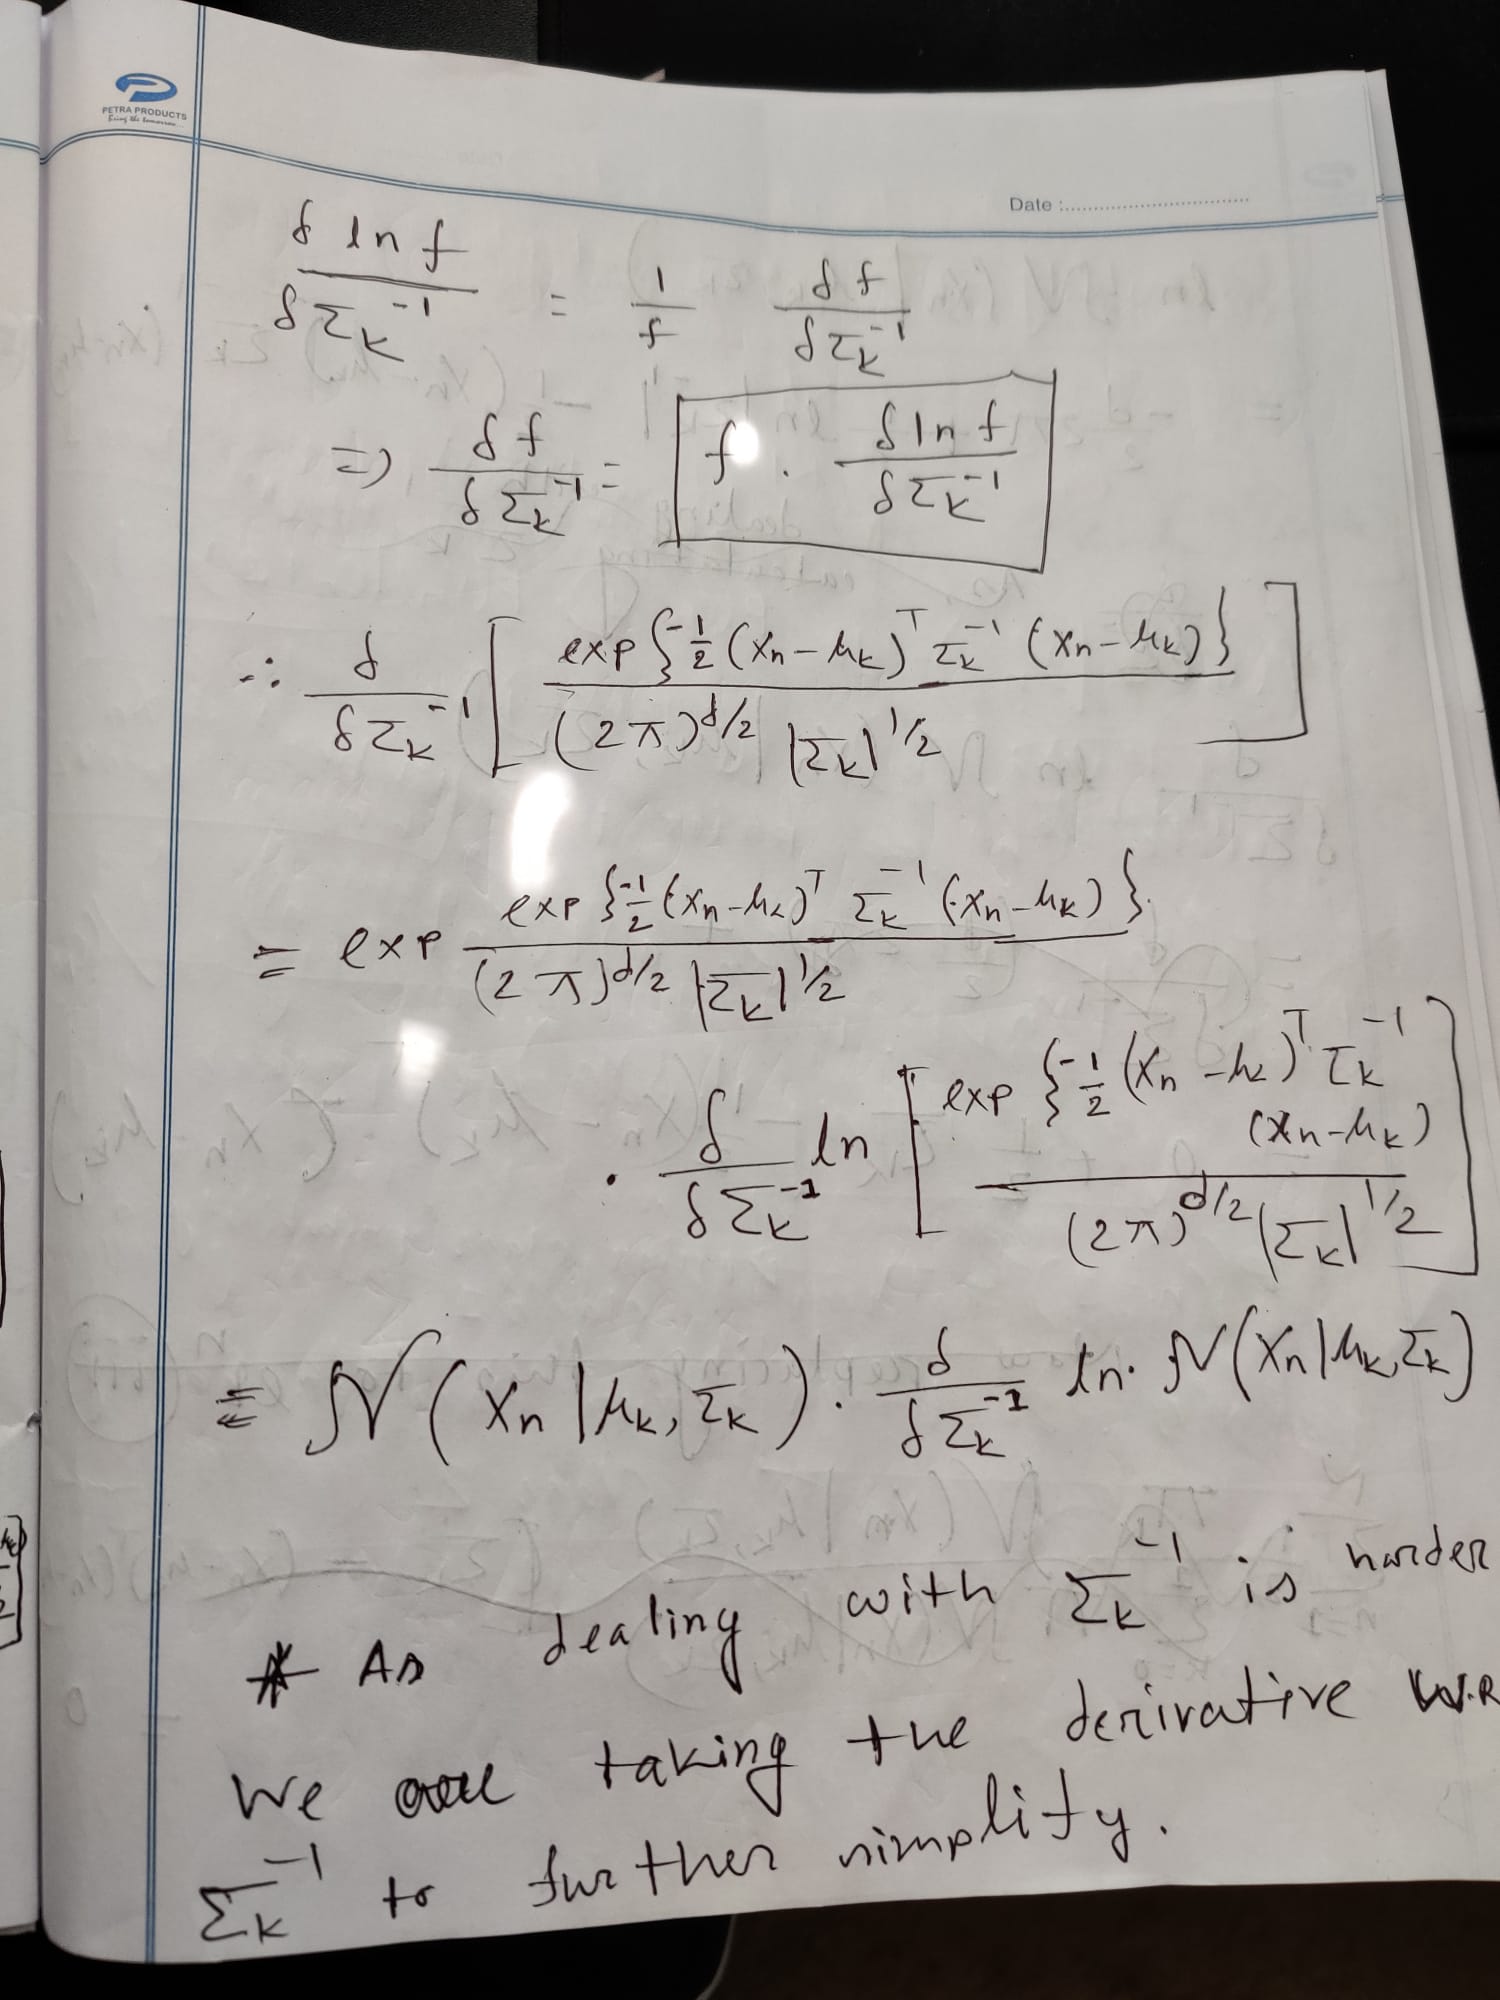 PETRA PRODUCTS
Bring the tomorrow...
Date :
δ ln f / δ Σk^-1 = 1/f δ f / δ Σk^-1
=> δ f / δ Σk^-1 = f . δ ln f / δ Σk^-1
∴ δ / δ Σk^-1 [ exp {-1/2 (xn - μk)^T Σk^-1 (xn - μk)} / (2π)^d/2 |Σk|^1/2 ]
= exp exp {-1/2 (xn - μk)^T Σk^-1 (xn - μk)} / (2π)^d/2 |Σk|^1/2
. δ / δ Σk^-1 ln [ exp {-1/2 (xn - μk)^T Σk^-1 (xn - μk) / (2π)^d/2 |Σk|^1/2 ]
= N (xn | μk, Σk) . δ / δ Σk^-1 ln N (xn | μk, Σk)
* As dealing with Σk^-1 is harder
we are taking the derivative W.R
Σk^-1 to further simplify.